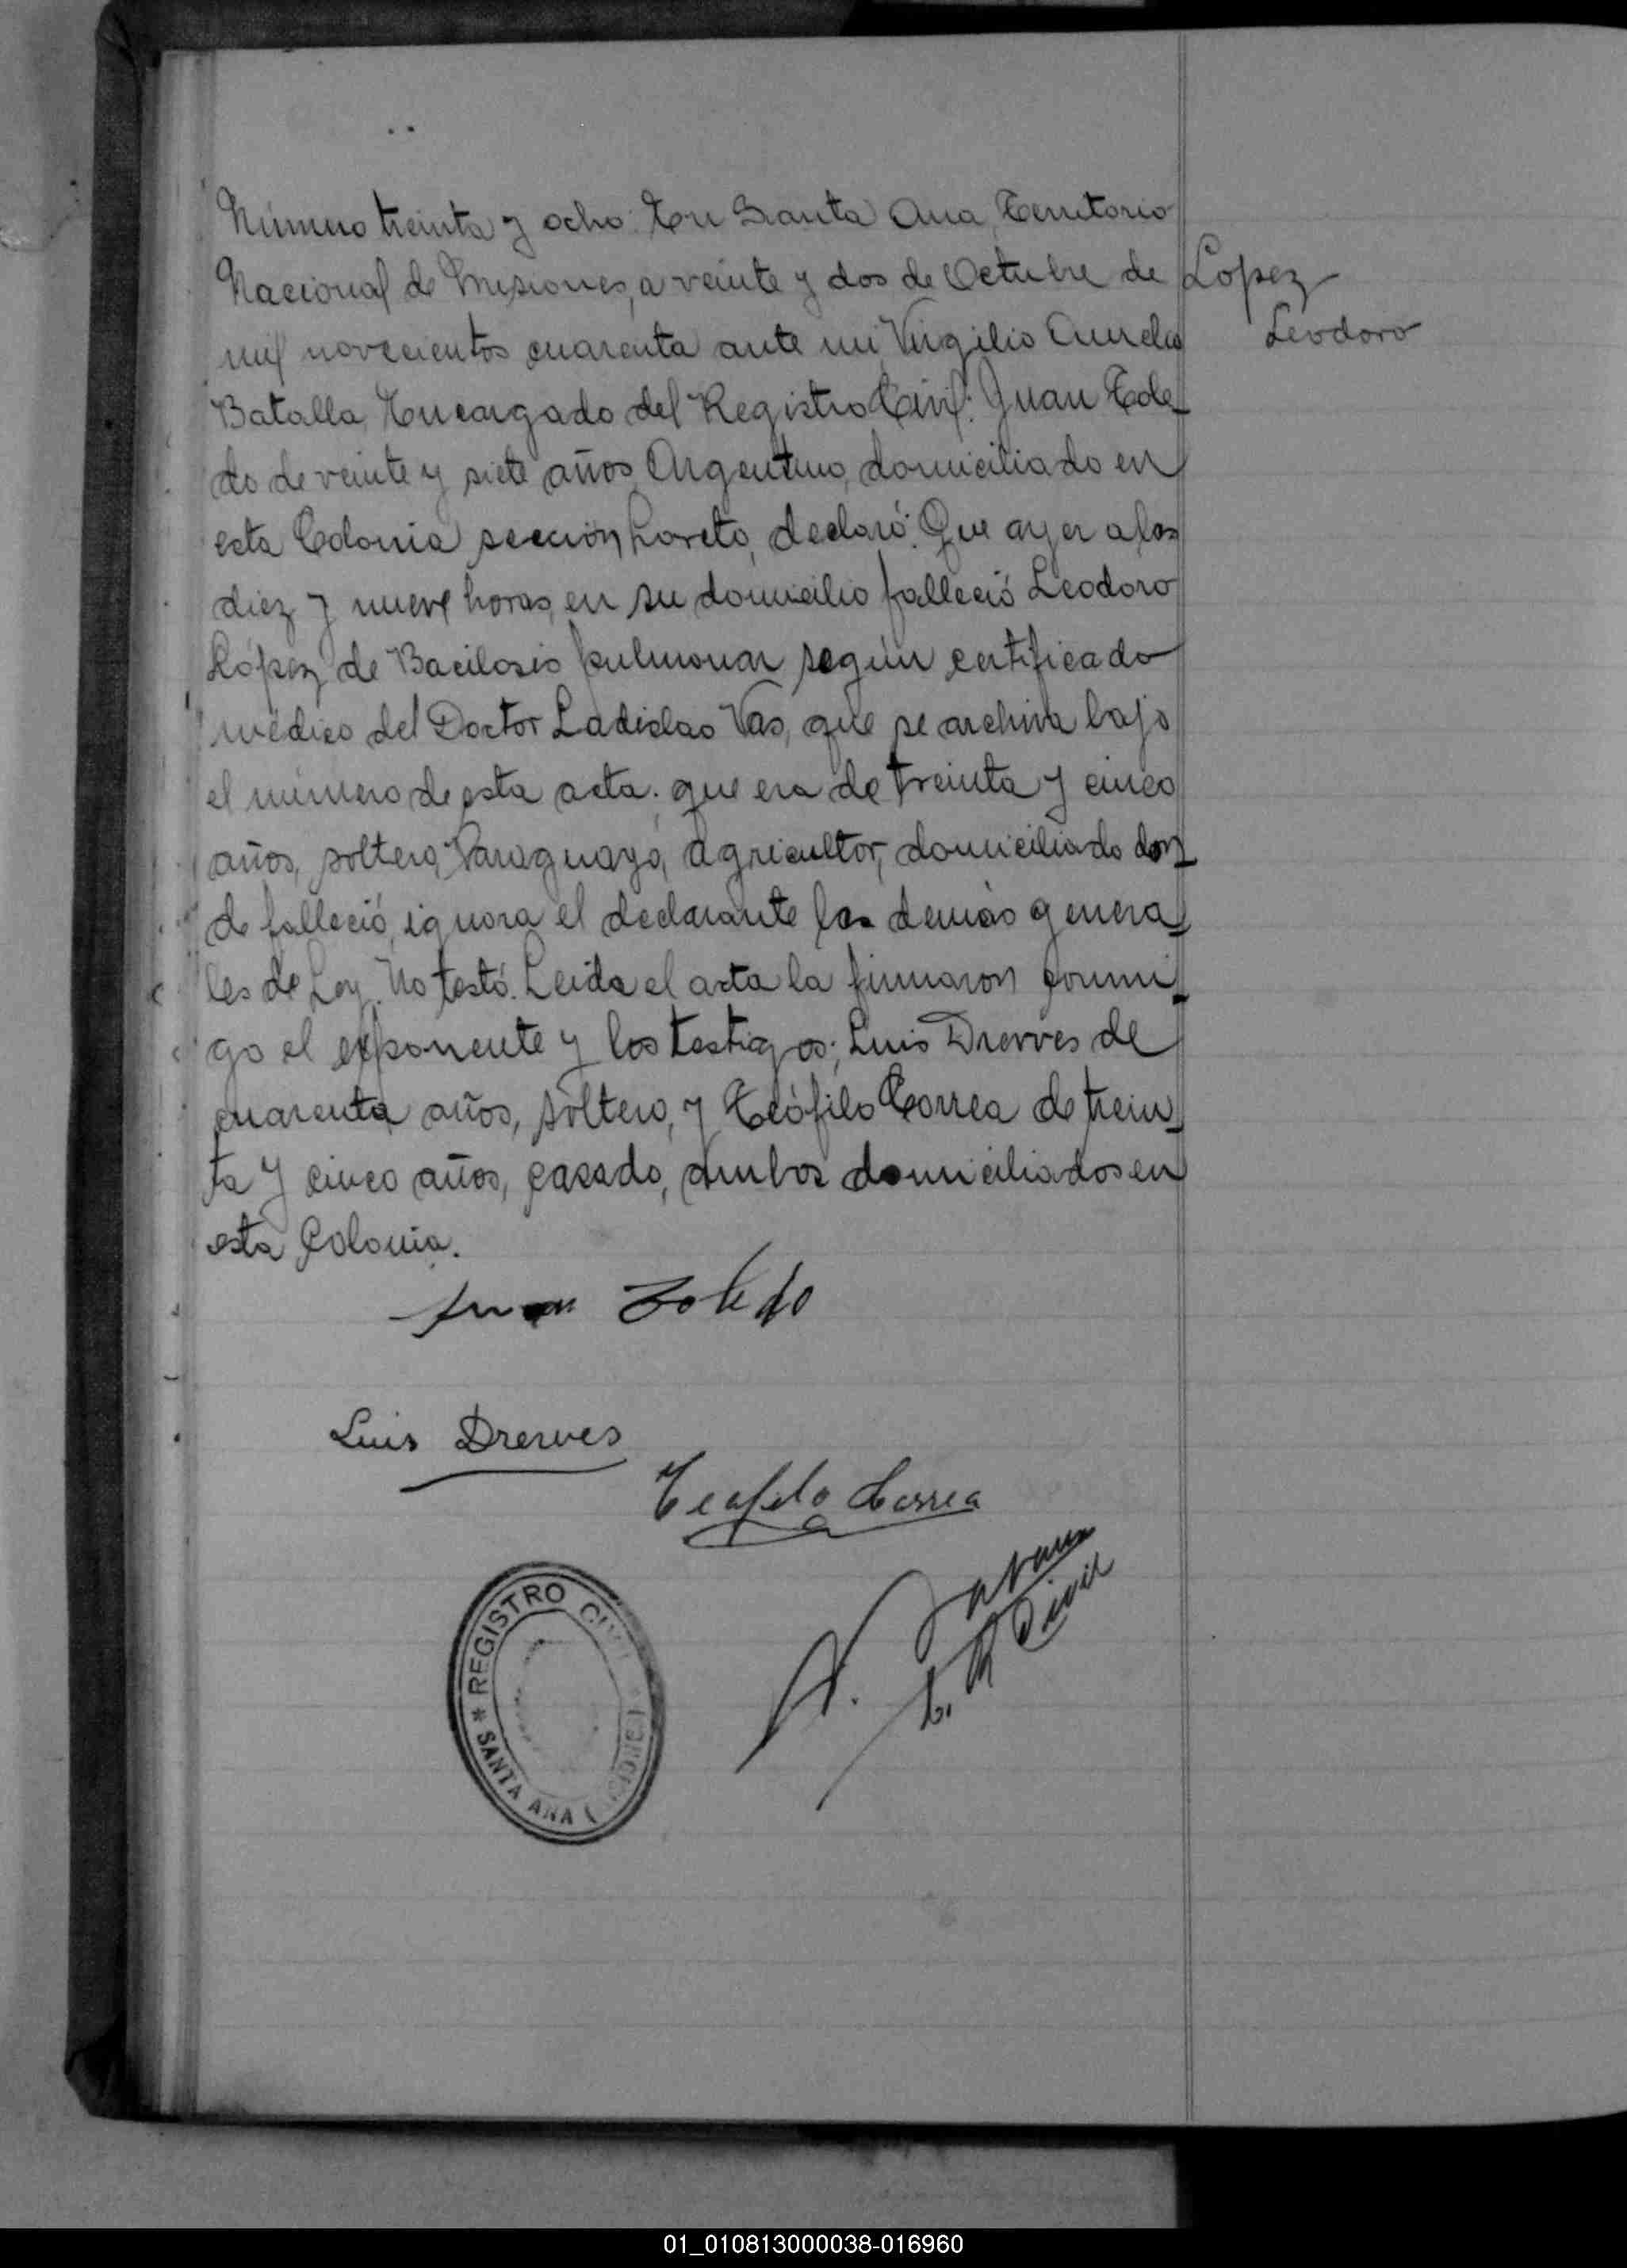 Número treinta y ocho: En Santa Ana, Territorio
Nacional de Misiones, a veinte y dos de Octubre de
mil novecientos cuarenta ante mi, Virgilio Aurelio
Batalla, Encargado del Registro Civil: Juan Tole_
do de veinte y siete años, Argentino, domiciliado en
esta Colonia sección Loreto, declaró: Que ayer a las
diez y nueve horas, en su domicilio falleció Leodoro
López, de Bacilosis pulmonar según certificado
médico del Doctor Ladislao Vas, que se archiva bajo
el número de esta acta; que era de treinta y cinco
años, soltero, Paraguayo, agricultor, domiciliado don_
de falleció, ignora el declarante las demás genera_
les de Ley. No testó. Leida el acta la firmaron conmi_
go el exponente y los testigos; Luis Drerves de
cuarenta años, soltero, y Teófilo Correa de trein_
ta y cinco años, casado, ambos domiciliados en
esta Colonia.
Lopez
Leodoro
Juan Toledo
Luis Drerves
Teofilo Correa
E. R Civil
* REGISTRO CIVIL *
SANTA ANA (MISIONES)
01_010813000038-016960